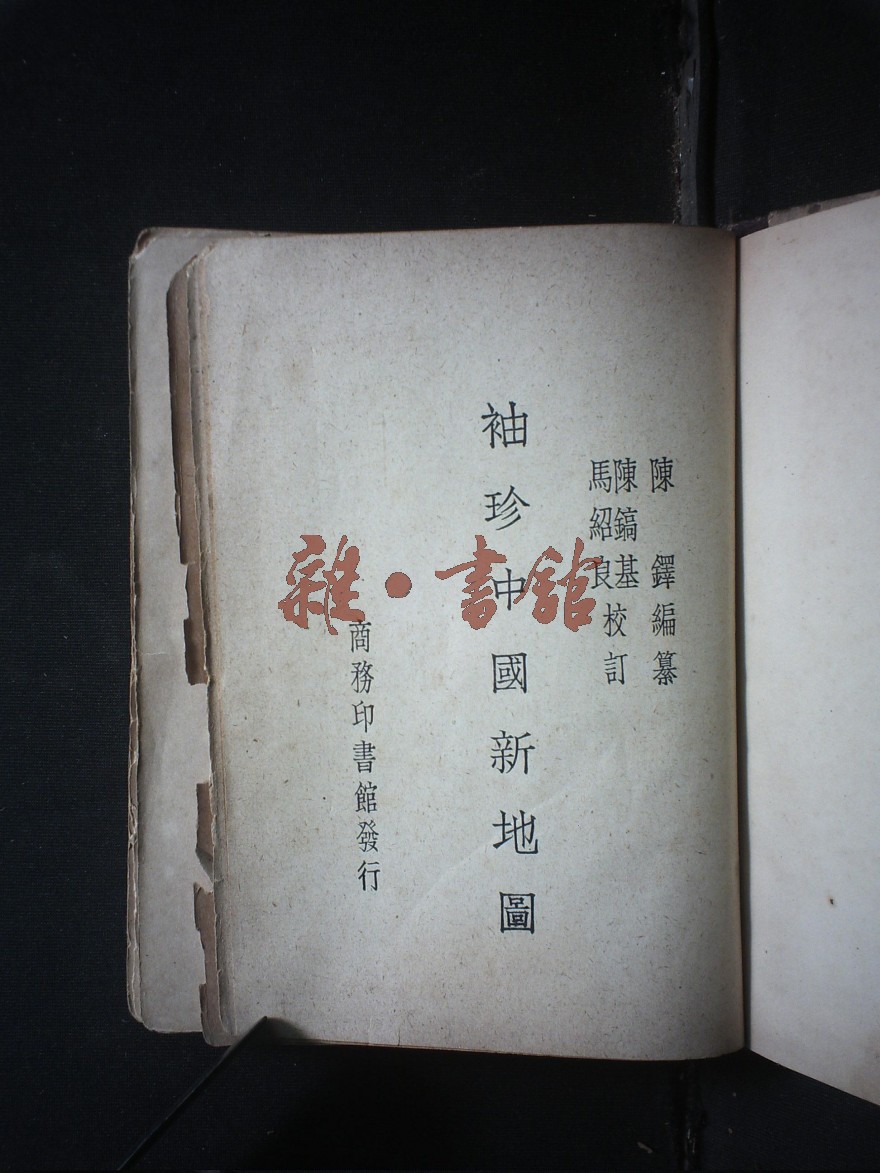 陳鐸編纂
陳鎬基
馬紹良
校訂
袖珍中國新地圖
商務印書館發行
雜·書館